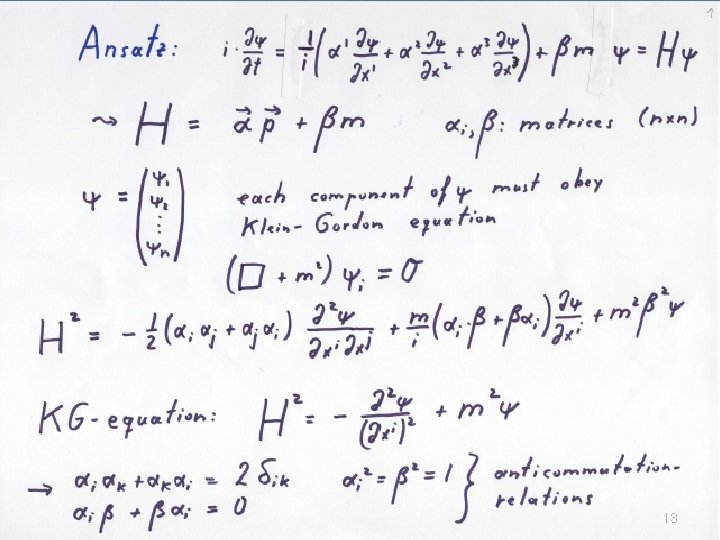 -1
Ansatz: i · ∂ψ/∂t = 1/i (α¹ ∂ψ/∂x¹ + α² ∂ψ/∂x² + α³ ∂ψ/∂x³) + βm ψ = Hψ
⤳ H = α⃗ p⃗ + βm αᵢ, β: matrices (n×n)
ψ = (ψ₁ ψ₂ ⋮ ψₙ) each component of ψ must obey
Klein-Gordon equation
(□ + m²) ψᵢ = 0
H² = - 1/2 (αᵢ αⱼ + αⱼ αᵢ) ∂²ψ/∂xⁱ∂xʲ + m/i (αᵢ·β + βαᵢ) ∂ψ/∂xⁱ + m²β²ψ
KG-equation: H² = - ∂²ψ/(∂xⁱ)² + m²ψ
→ αᵢ αₖ + αₖ αᵢ = 2 δᵢₖ αᵢ² = β² = 1 } anticommutation-
αᵢ β + β αᵢ = 0 relations
13